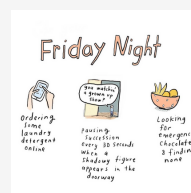 Friday Night
you watchin'
a grown up
show?
Ordering
some
laundry
detergent
online
Pausing
Succession
every 30 seconds
when a
shadowy figure
appears in the
doorway
Looking
for
emergency
chocolate
& finding
none